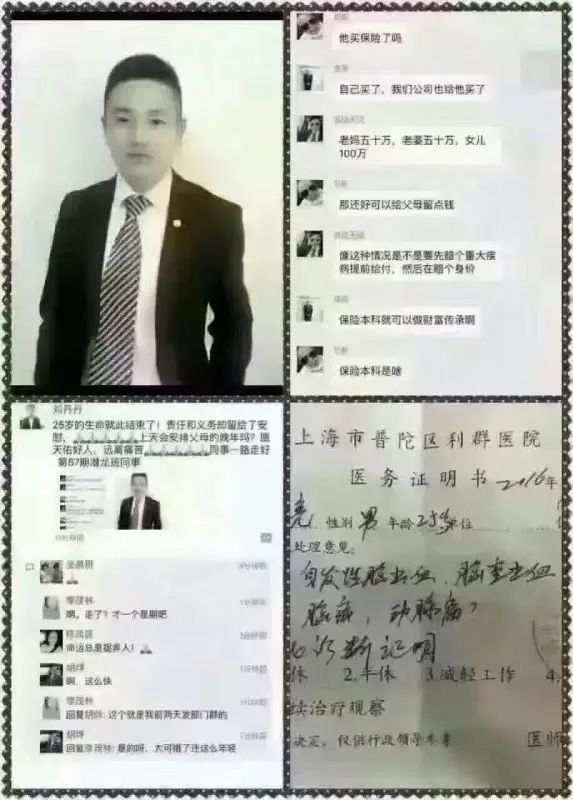 他买保险了吗
自己买了，我们公司也给他买了
老妈五十万，老婆五十万，女儿
100万
那还好可以给父母留点钱
像这种情况是不是要先赔个重大疾
病提前给付，然后在赔个身价
保险本科就可以做财富传承啊
保险本科是啥
刘丹丹
25岁的生命就此结束了！责任和义务却留给了安
慰，🙏🙏🙏🙏🙏上天会安排父母的晚年吗？愿
天佑好人，远离痛苦🙏🙏🙏🙏🙏同事一路走好
第57期潜龙班同事
李茂林
啊，走了？才一个星期吧
命运总是捉弄人！🙏
胡烨
啊，这么快
李茂林
回复胡烨: 这个就是我前两天发部门群的
胡烨
回复李茂林: 是的呀，太可惜了还这么年轻
上海市普陀区利群医院
医务证明书 2016年
性别 男 年龄 25岁 单位
处理意见：
自发性脑出血、脑室出血
诊断证明
休 2.半休 3.减轻工作 4.
续治疗观察
决定，仅供行政领导参考 医师